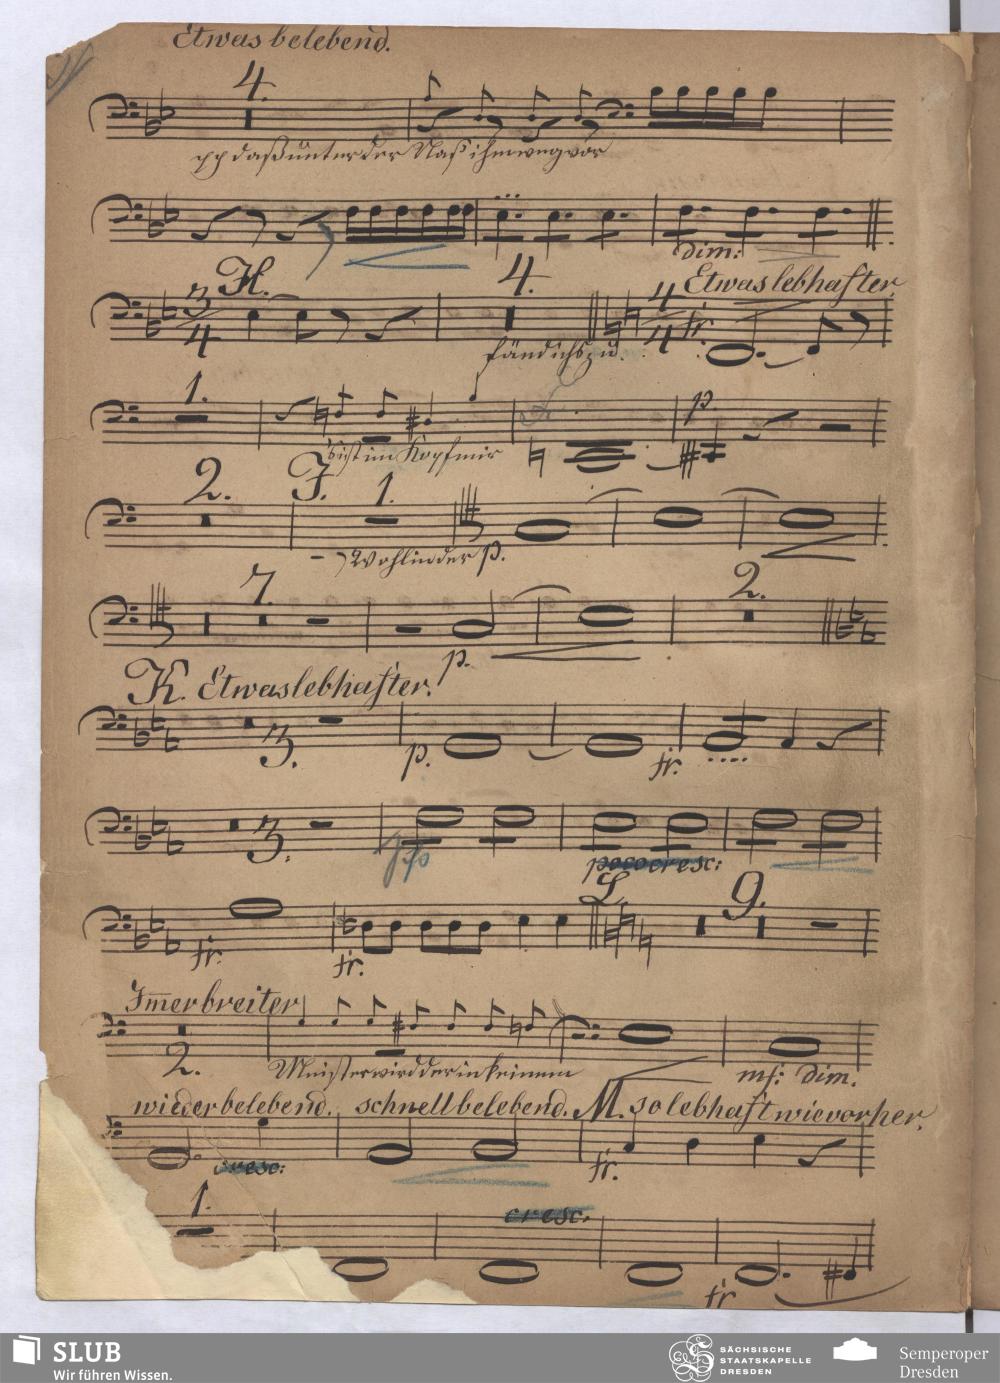 Etwas belebend.
4.
pp daß unter der Naß ihm weg vor
dim:
H.
4.
Etwas lebhafter.
3/4
4/4
tr.
fänd ich's zu
1.
p.
bist im Kopf mir
2.
J.
1.
Wohl in der p.
7.
2.
p.
K. Etwas lebhafter.
3.
p.
tr.
3.
poco cresc:
L.
9.
tr.
tr.
Im̅er breiter
2.
Meister wird der in keinem
mf: dim.
wieder belebend. schnell belebend. M. so lebhaft wie vorher.
cresc:
tr.
1.
cresc.
tr
SLUB
Wir führen Wissen.
SÄCHSISCHE
STAATSKAPELLE
DRESDEN
Semperoper
Dresden